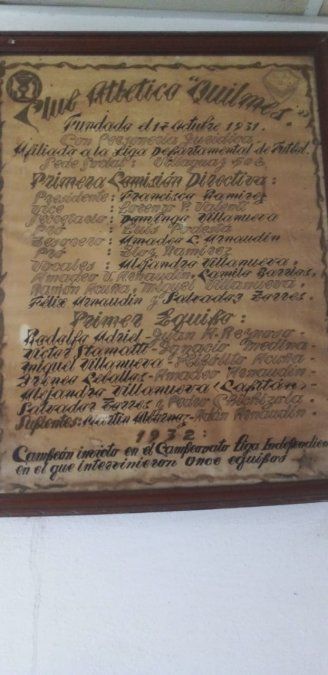 Club Atletico "Quilmes."
Fundado el 17 octubre 1931.
Con Personeria Juridica
Afiliado a la Liga Departamental de Futbol.
Sede Social:
Primera Comisión Directiva:
Presidente: Francisco Ramirez
Vice
Secretario: Domingo Villanueva
Pro : Luis
Tesorero : Amadeo L. Arnaudin
Pro : Ramirez
Vocales: Alejandro Villanueva.
Amadeo Arnaudin, Camilo Barrios.
Ramón Acuña, Miguel Villanueva.
Félix Arnaudin y Salvador Torres.
Primer Equipo:
Rodolfo Adriel- Juan A. Reynoso-
Victor Stamatti- Medina
Miguel Villanueva- Acuña
Ireneo Ceballos- Amadeo Arnaudin-
Alejandro Villanueva (Capitán)-
Salvador Torres Pedro
Suplentes: Martin Albornoz- Adán Arnaudin
1932:
Campeón invicto en el Campeonato Liga
en el que intervinieron once equipos